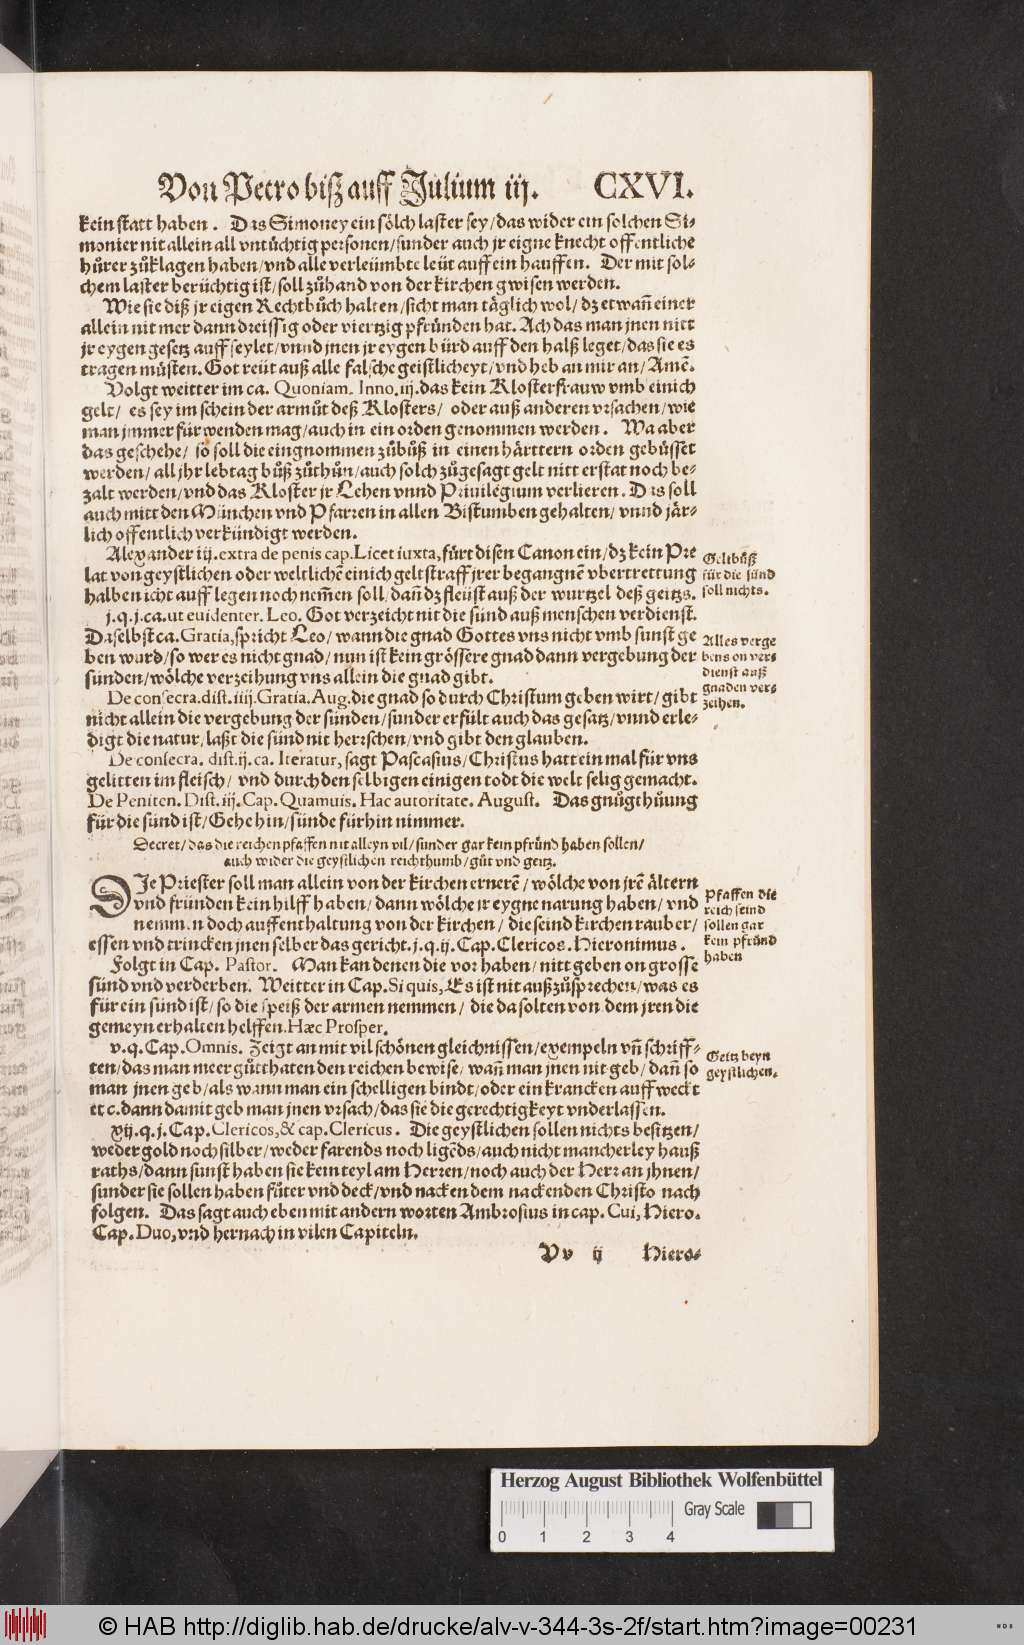 Von Petro biß auff Julium iij. CXVI.
kein statt haben. Das Simoney ein sölch laster sey/das wider ein solchen Si-
monier nit allein all vntüchtig personen/sunder auch jr eigne knecht offentliche
hůrer zůklagen haben/vnd alle verleümbte leüt auff ein hauffen. Der mit sol-
chem laster berüchtig ist/soll zůhand von der kirchen gwisen werden.
Wie sie diß jr eigen Rechtbůch halten/sicht man täglich wol/dz etwañ einer
allein nit mer dann dreissig oder viertzig pfründen hat. Ach das man jnen nitt
jr eygen gesetz auff seylet/vnnd jnen jr eygen bürd auff den halß leget/das sie es
tragen müsten. Got reüt auß alle falsche geistlicheyt/vnd heb an mir an/Amē.
Volgt weitter im ca. Quoniam. Inno. iij. das kein Klosterfrauw vmb einich
gelt/ es sey im schein der armůt deß Klosters/ oder auß anderen vrsachen/wie
man jmmer fürwenden mag/auch in ein orden genommen werden. Wa aber
das geschehe/ so soll die eingnommen zůbůß in einen härttern orden gebüsset
werden/all jhr lebtag bůß zůthůn/auch solch zůgesagt gelt nitt erstat noch be-
zalt werden/vnd das Kloster jr Lehen vnnd Priuilegium verlieren. Das soll
auch mitt den München vnd Pfarren in allen Bistumben gehalten/ vnnd jär-
lich offentlich verkündigt werden.
Alexander iij. extra de penis cap. Licet iuxta, fürt disen Canon ein/dz kein Pre
lat von geystlichen oder weltlichē einich geltstraff jrer begangnē vbertrettung
halben icht auff legen noch nem̄en soll/dañ dz fleüst auß der wurtzel deß geitzs.
j. q. j. ca. ut euidenter. Leo. Got verzeicht nit die sünd auß menschen verdienst.
Daselbst ca. Gratia, spricht Leo/wann die gnad Gottes vns nicht vmb sunst ge
ben wurd/so wer es nicht gnad/nun ist kein grössere gnad dann vergebung der
sünden/wölche verzeihung vns allein die gnad gibt.
De consecra. dist. iiij. Gratia. Aug. die gnad so durch Christum geben wirt/ gibt
nicht allein die vergebung der sünden/sunder erfült auch das gesätz/vnnd erle-
digt die natur/laßt die sünd nit herrschen/vnd gibt den glauben.
De consecra. dist. ij. ca. Iteratur, sagt Pascasius/Christus hatt ein mal für vns
gelitten im fleisch/ vnd durch den selbigen einigen todt die welt selig gemacht.
De Peniten. Dist. iij. Cap. Quamuis. Hac autoritate. August. Das gnůgthůung
für die sünd ist/Gehe hin/sünde fürhin nimmer.
Decret/das die reichen pfaffen nit alleyn vil/sunder gar kein pfründ haben sollen/
auch wider die geystlichen reichthumb/gůt vnd geitz.
DJe Priester soll man allein von der kirchen ernerē/wölche von jrē ältern
vnd fründen kein hilff haben/dann wölche jr eygne narung haben/vnd
nemmen doch auffenthaltung von der kirchen/ die seind kirchen rauber/
essen vnd trincken jnen selber das gericht. j. q. ij. Cap. Clericos. Hieronimus.
Folgt in Cap. Pastor. Man kan denen die vor haben/nitt geben on grosse
sünd vnd verderben. Weitter in Cap. Si quis, Es ist nit außzůsprechen/was es
für ein sünd ist/so die speiß der armen nemmen/ die da solten von dem jren die
gemeyn erhalten helffen. Hæc Prosper.
v. q. Cap. Omnis. Zeigt an mit vil schönen gleichnissen/exempeln vñ schriff-
ten/das man meer gůtthaten den reichen bewise/wañ man jnen nit geb/dañ so
man jnen geb/als wann man ein schelligen bindt/oder ein krancken auff weckt
etc. dann damit geb man jnen vrsach/das sie die gerechtigkeyt vnderlassen.
xij. q. j. Cap. Clericos, & cap. Clericus. Die geystlichen sollen nichts besitzen/
weder gold noch silber/weder farends noch ligēds/auch nicht mancherley hauß
raths/dann sunst haben sie kein teyl am Herren/noch auch der Herr an jhnen/
sunder sie sollen haben fůter vnd deck/vnd nacken dem nackenden Christo nach
folgen. Das sagt auch eben mit andern worten Ambrosius in cap. Cui, Hiero.
Cap. Duo, vnd hernach in vilen Capiteln.
Vv ij Hiero-
Geltbůß
für die sünd
soll nichts.
Alles verge
bens on ver-
dienst auß
gnaden ver-
zeihen.
Pfaffen die
reich seind
sollen gar
kein pfründ
haben
Geitz beyn
geystlichen.
Herzog August Bibliothek Wolfenbüttel
Gray Scale
0 1 2 3 4
© HAB http://diglib.hab.de/drucke/alv-v-344-3s-2f/start.htm?image=00231